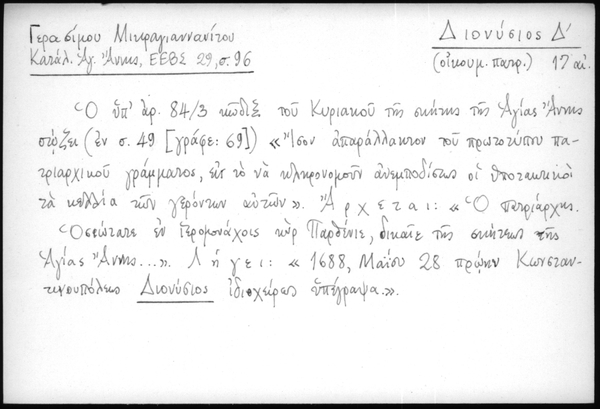 Γερασίμου Μικραγιαννανίτου
Κατάλ. Ἁγ. Ἄννης, ΕΕΒΣ 29, σ. 96
Διονύσιος Δ'
(οἰκουμ. πατρ.) 17 αἰ.
Ὁ ὑπ' ἀρ. 84/3 κῶδιξ τοῦ Κυριακοῦ τῆς σκήτης τῆς Ἁγίας Ἄννης
σῴζει (ἐν σ. 49 [γράφε: 69]) «Ἴσον ἀπαράλλακτον τοῦ πρωτοτύπου πα-
τριαρχικοῦ γράμματος, εἰς τὸ νὰ κληρονομοῦν ἀνεμποδίστως οἱ ὑποτακτικοὶ
τὰ κελλία τῶν γερόντων αὐτῶν». Ἄρχεται: «Ὁ Πατριάρχης.
Ὁσιώτατε ἐν ἱερομονάχοις κὺρ Παρθένιε, δικαῖε τῆς σκήτεως τῆς
Ἁγίας Ἄννης...». Λήγει: «1688, Μαΐου 28 πρῴην Κωνσταν-
τινουπόλεως Διονύσιος ἰδιοχείρως ὑπέγραψα.».